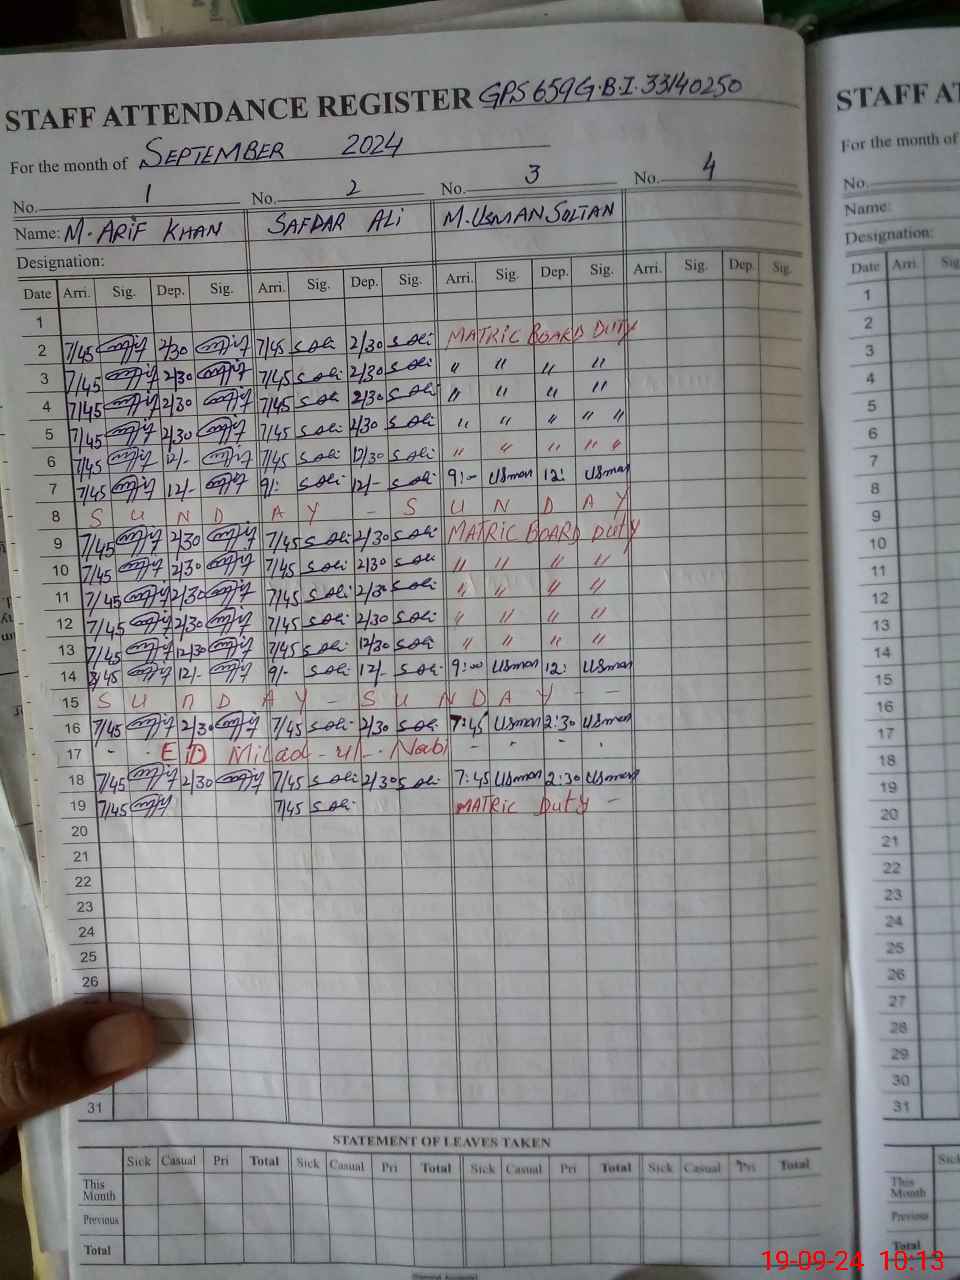 STAFF ATTENDANCE REGISTER GPS 659 G.B.I. 33140250
For the month of SEPTEMBER 2024
No. 1 No. 2 No. 3 No. 4
Name: M. ARIF KHAN SAFDAR ALI M. USMAN SULTAN
Designation:
Date Arri. Sig. Dep. Sig. Arri. Sig. Dep. Sig. Arri. Sig. Dep. Sig. Arri. Sig. Dep. Sig.
1
2 7/45 2/30 7/45 S Ali 2/30 S Ali MATRIC BOARD DUTY
3 7/45 2/30 7/45 S Ali 2/30 S Ali " " " "
4 7/45 2/30 7/45 S Ali 2/30 S Ali " " " "
5 7/45 2/30 7/45 S Ali 2/30 S Ali " " " " "
6 7/45 12/- 7/45 S Ali 12/30 S Ali " " " " "
7 7/45 12/- 9/: S Ali 12/- S Ali 9:- Usman 12: Usman
8 S U N D A Y - S U N D A Y
9 7/45 2/30 7/45 S Ali 2/30 S Ali MATRIC BOARD DUTY
10 7/45 2/30 7/45 S Ali 2/30 S Ali " " " "
11 7/45 2/30 7/45 S Ali 2/30 S Ali " " " "
12 7/45 2/30 7/45 S Ali 2/30 S Ali " " " "
13 7/45 12/30 7/45 S Ali 12/30 S Ali " " " "
14 7/45 12/- 9/- S Ali 12/- S Ali 9:00 Usman 12: Usman
15 S U N D A Y - S U N D A Y - -
16 7/45 2/30 7/45 S Ali 2/30 S Ali 7:45 Usman 2:30 Usman
17 - - ED Milad-ul-Nabi - - - -
18 7/45 2/30 7/45 S Ali 2/30 S Ali 7:45 Usman 2:30 Usman
19 7/45 7/45 S Ali MATRIC Duty -
20
21
22
23
24
25
26
31
STATEMENT OF LEAVES TAKEN
Sick Casual Pri Total Sick Casual Pri Total Sick Casual Pri Total Sick Casual Pri Total
This Month
Previous
Total
STAFF AT
For the month of
No.
Name:
Designation:
Date Arri. Sig
1
2
3
4
5
6
7
8
9
10
11
12
13
14
15
16
17
18
19
20
21
22
23
24
25
26
27
28
29
30
31
Sick
This Month
Previous
Total
19-09-24 10:13